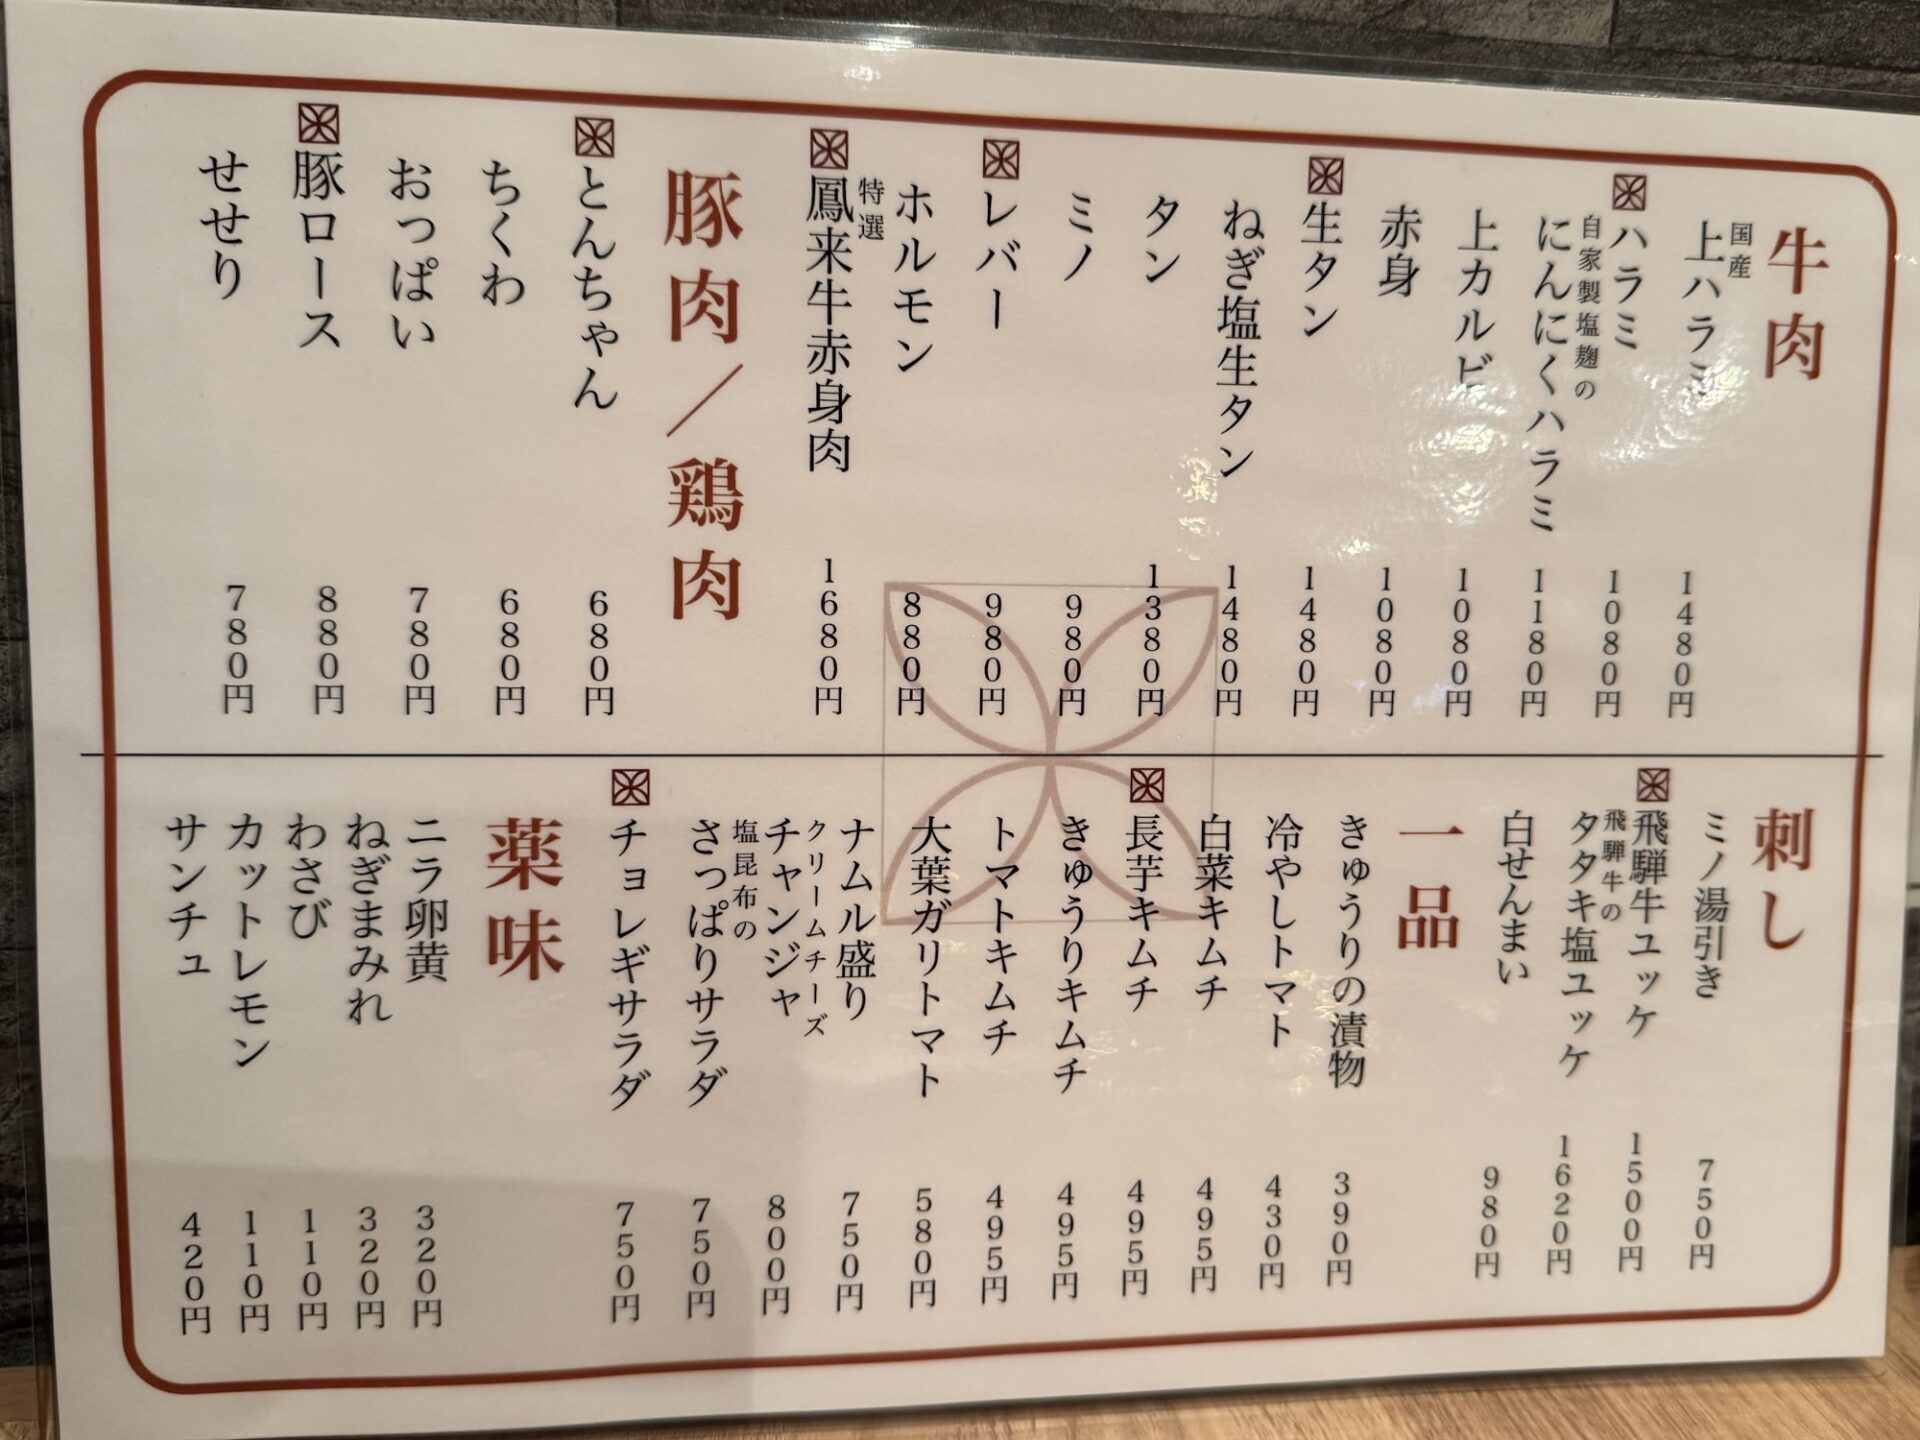 牛肉
国産
上ハラミ 1480円
ハラミ 1080円
自家製塩麹の
にんにくハラミ 1180円
上カルビ 1080円
赤身 1080円
生タン 1480円
ねぎ塩生タン 1480円
タン 1380円
ミノ 980円
レバー 980円
ホルモン 880円
特選
鳳来牛赤身肉 1680円
豚肉／鶏肉
とんちゃん 680円
ちくわ 680円
おっぱい 780円
豚ロース 880円
せせり 780円
刺し
ミノ湯引き 750円
飛騨牛ユッケ 1500円
飛騨牛の
タタキ塩ユッケ 1620円
白せんまい 980円
一品
きゅうりの漬物 390円
冷やしトマト 430円
白菜キムチ 495円
長芋キムチ 495円
きゅうりキムチ 495円
トマトキムチ 495円
大葉ガリトマト 580円
ナムル盛り 750円
クリームチーズ
チャンジャ 800円
塩昆布の
さっぱりサラダ 750円
チョレギサラダ 750円
薬味
ニラ卵黄 320円
ねぎまみれ 320円
わさび 110円
カットレモン 110円
サンチュ 420円